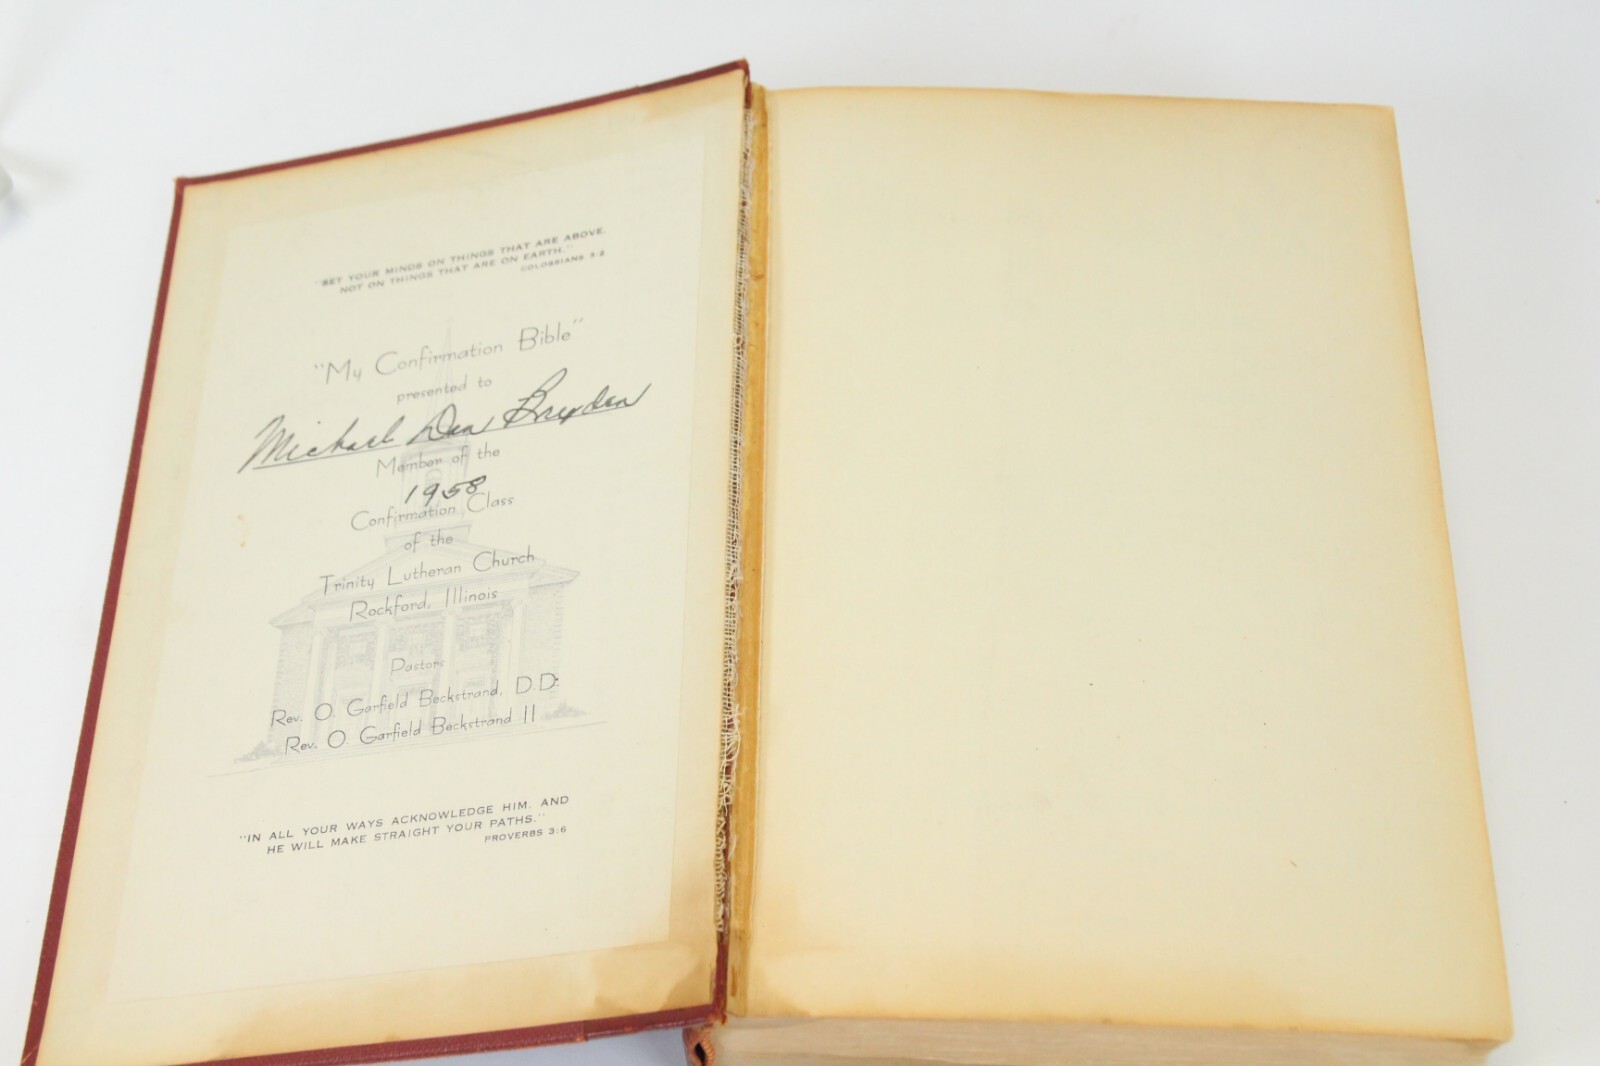 "SET YOUR MINDS ON THINGS THAT ARE ABOVE,
NOT ON THINGS THAT ARE ON EARTH."
COLOSSIANS 3:2
"My Confirmation Bible"
presented to
Michael Dan
Member of the
1958
Confirmation Class
of the
Trinity Lutheran Church
Rockford, Illinois
Pastors
Rev. O. Garfield Beckstrand, D.D.
Rev. O. Garfield Beckstrand II
"IN ALL YOUR WAYS ACKNOWLEDGE HIM, AND
HE WILL MAKE STRAIGHT YOUR PATHS."
PROVERBS 3:6